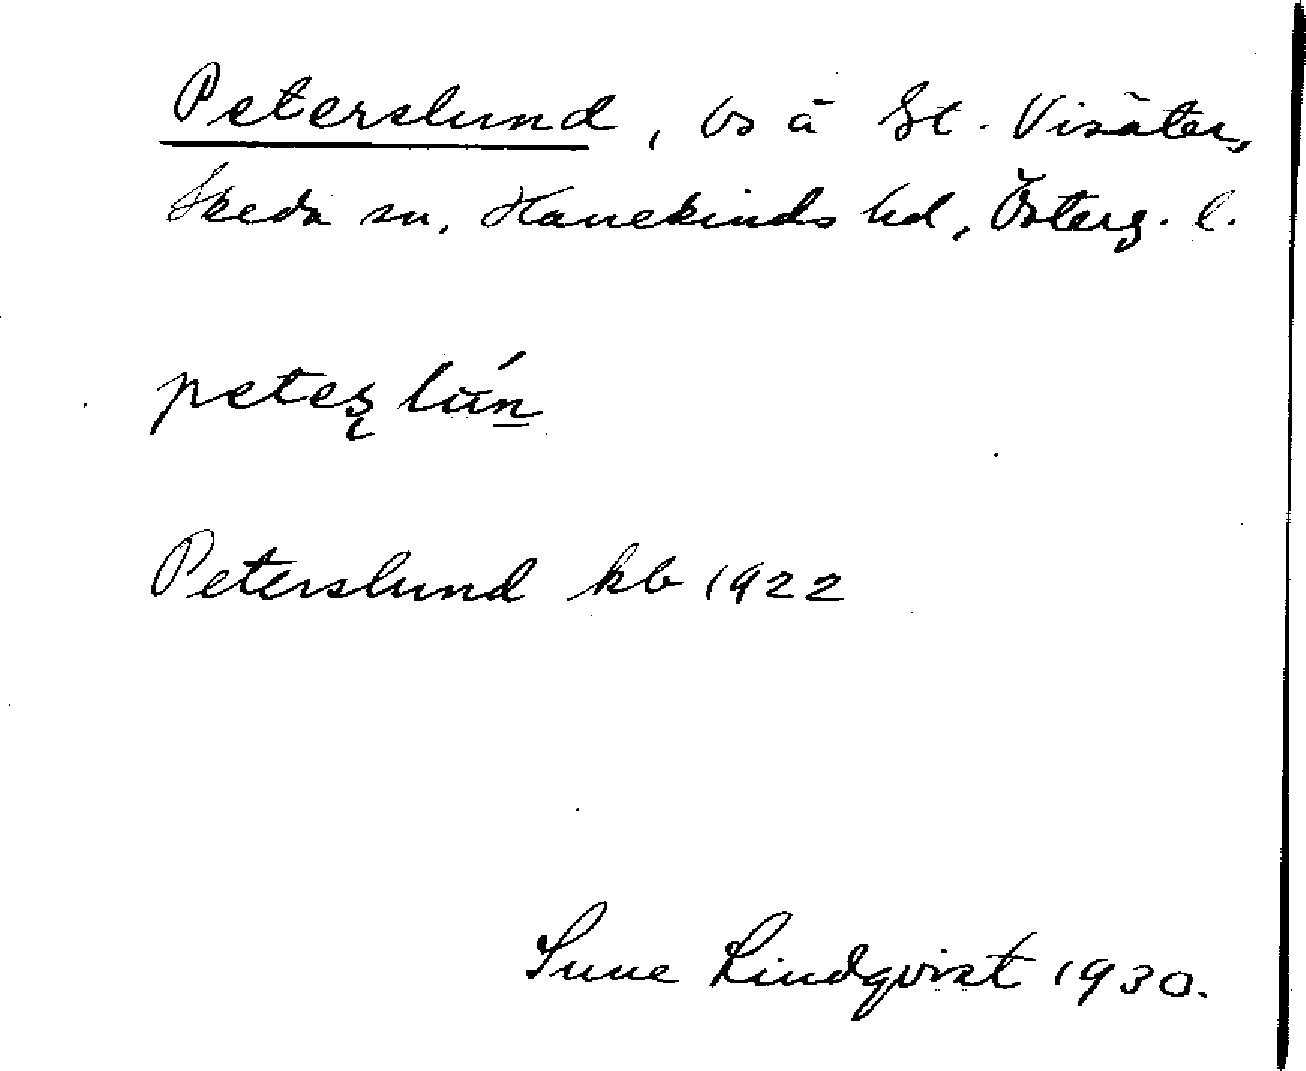 Peterslund, bs å St. Visäter,
Skeda sn, Hanekinds hd, Österg. l.
Peterslund kb 1922
Sune Lindqvist 1930.